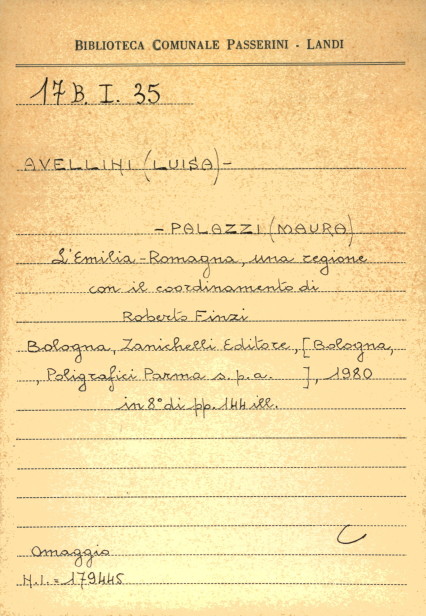 BIBLIOTECA COMUNALE PASSERINI - LANDI
17 B. I. 35
AVELLINI (LUISA) -
- PALAZZI (MAURA)
L'Emilia-Romagna, una regione
con il coordinamento di
Roberto Finzi
Bologna, Zanichelli Editore, [Bologna,
, Poligrafici Parma s.p.a. ], 1980
in 8° di pp. 144 ill.
C
Omaggio
N.I. = 179445